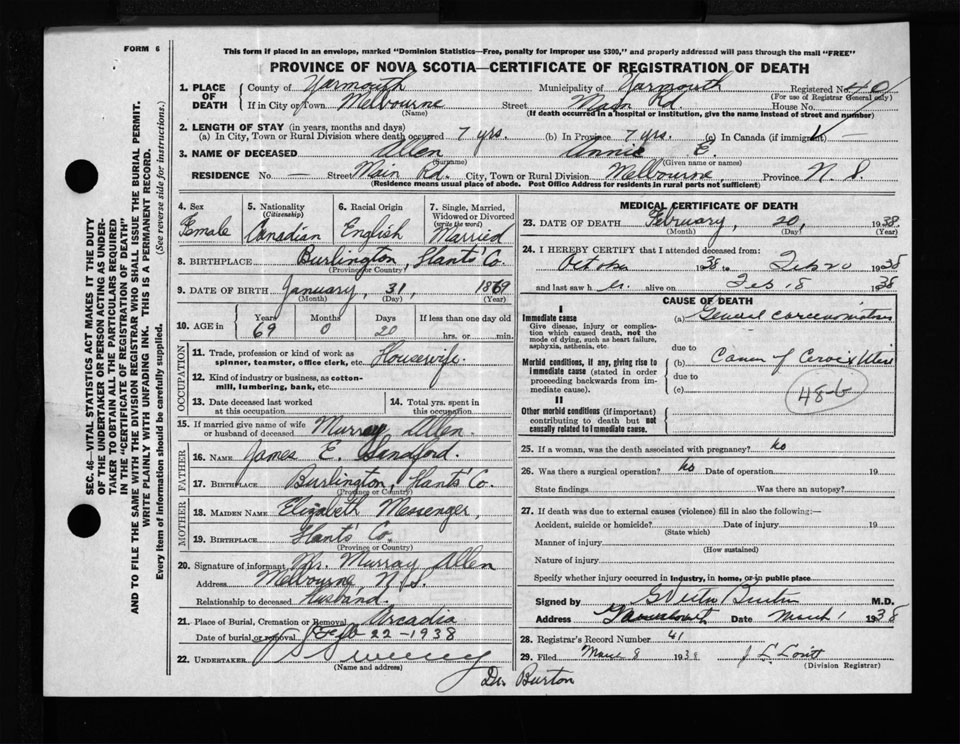 FORM 6
This form if placed in an envelope, marked "Dominion Statistics—Free, penalty for improper use $300," and properly addressed will pass through the mail "FREE"
PROVINCE OF NOVA SCOTIA—CERTIFICATE OF REGISTRATION OF DEATH
1. PLACE OF DEATH County of Yarmouth Municipality of Yarmouth Registered No. 40
(For use of Registrar General only)
If in City or Town Melbourne Street Main Rd House No.
(Name) (If death occurred in a hospital or institution, give the name instead of street and number)
2. LENGTH OF STAY (in years, months and days)
(a) In City, Town or Rural Division where death occurred 7 yrs. (b) In Province 7 yrs. (c) In Canada (if immigrant) —
3. NAME OF DECEASED Allen Annie E.
(Surname) (Given name or names)
RESIDENCE No. — Street Main Rd. City, Town or Rural Division Melbourne, Province N. S.
(Residence means usual place of abode. Post Office Address for residents in rural parts not sufficient)
4. Sex Female
5. Nationality (Citizenship) Canadian
6. Racial Origin English
7. Single, Married, Widowed or Divorced (write the word) Married
8. BIRTHPLACE Burlington, Hants Co.
(Province or Country)
9. DATE OF BIRTH January, 31, 1869
(Month) (Day) (Year)
10. AGE in Years 69 Months 0 Days 20 If less than one day
hrs. or min.
OCCUPATION
11. Trade, profession or kind of work as spinner, teamster, office clerk, etc. Housewife.
12. Kind of industry or business, as cotton-mill, lumbering, bank, etc.
13. Date deceased last worked at this occupation
14. Total yrs. spent in this occupation
15. If married give name of wife or husband of deceased Murray Allen.
FATHER
16. NAME James E. Sandford.
17. BIRTHPLACE Burlington, Hants Co.
(Province or Country)
MOTHER
18. MAIDEN NAME Elizabeth Messenger,
19. BIRTHPLACE Hants Co.
(Province or Country)
20. Signature of informant Mr. Murray Allen
Address Melbourne N.S.
Relationship to deceased Husband.
21. Place of Burial, Cremation or Removal Arcadia
Date of burial or removal Feb 22-1938
22. UNDERTAKER Sweeney
(Name and address)
Dr. Burton
MEDICAL CERTIFICATE OF DEATH
23. DATE OF DEATH February, 20, 1938
(Month) (Day) (Year)
24. I HEREBY CERTIFY that I attended deceased from:
October 1938 to Feb 20 1938
and last saw her alive on Feb 18 1938
CAUSE OF DEATH
I
Immediate cause
Give disease, injury or complication which caused death, not the mode of dying, such as heart failure, asphyxia, asthenia, etc.
(a) General carcinomatosis
due to
Morbid conditions, if any, giving rise to immediate cause (stated in order proceeding backwards from immediate cause).
(b) Cancer of Cervix Uteri
due to
(c)
48-b
II
Other morbid conditions (if important) contributing to death but not causally related to immediate cause.
25. If a woman, was the death associated with pregnancy? no
26. Was there a surgical operation? no Date of operation 19
State findings Was there an autopsy?
27. If death was due to external causes (violence) fill in also the following:—
Accident, suicide or homicide? Date of injury 19
(State which)
Manner of injury
(How sustained)
Nature of injury
Specify whether injury occurred in industry, in home, or in public place
Signed by Burton M.D.
Address Yarmouth Date March 1 1938
28. Registrar's Record Number 41
29. Filed March 8 1938
(Division Registrar)
SEC. 46—VITAL STATISTICS ACT MAKES IT THE DUTY
OF THE UNDERTAKER OR PERSON ACTING AS UNDER-
TAKER TO OBTAIN ALL THE PARTICULARS REQUIRED
IN THE "CERTIFICATE OF REGISTRATION OF DEATH"
AND TO FILE THE SAME WITH THE DIVISION REGISTRAR WHO SHALL ISSUE THE BURIAL PERMIT.
WRITE PLAINLY WITH UNFADING INK. THIS IS A PERMANENT RECORD.
Every item of Information should be carefully supplied. (See reverse side for instructions.)